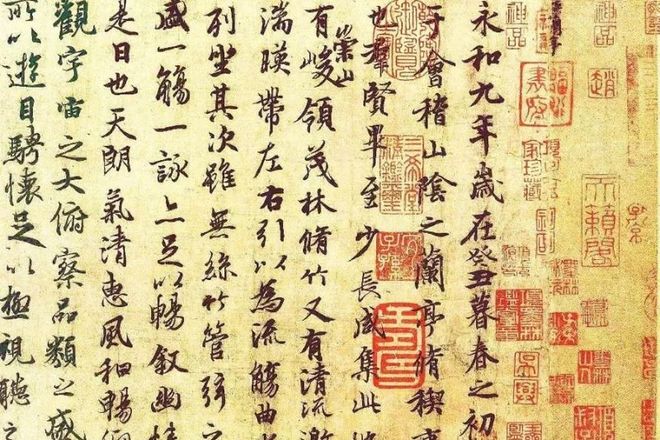 趙
天籟閣
家珍藏
永和九年歲在癸丑暮春之初
于會稽山陰之蘭亭脩禊
也羣賢畢至少長咸集此
崇山
有峻領茂林脩竹又有清流激
湍暎帶左右引以為流觴曲
列坐其次雖無絲竹管弦之
盛一觴一詠亦足以暢敘幽情
是日也天朗氣清惠風和暢仰
觀宇宙之大俯察品類之盛
所以遊目騁懷足以極視聽之